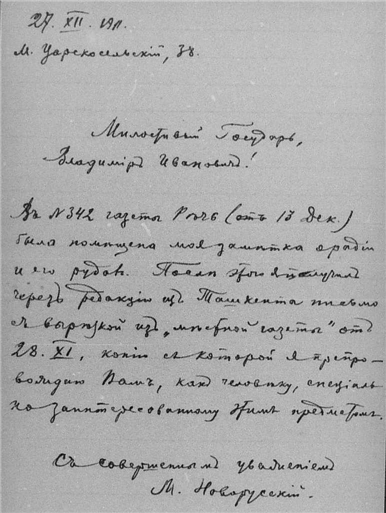 27. XII. 1911.
М. Царскосельскій, 38.
Милостивый Государь,
Владиміръ Ивановичъ!
Въ № 342 газеты Рѣчь (отъ 13 Дек.)
была помѣщена моя замѣтка о радіи
и его рудахъ. Послѣ этого я получилъ
черезъ редакцію изъ Ташкента письмо
съ вырѣзкой изъ „мѣстной газеты" отъ
28. XI, копію съ которой я препро-
вождаю Вамъ, какъ человѣку, спеціаль-
но заинтересованному этимъ предметомъ.
Съ совершеннымъ уваженіемъ
М. Новорусскій.